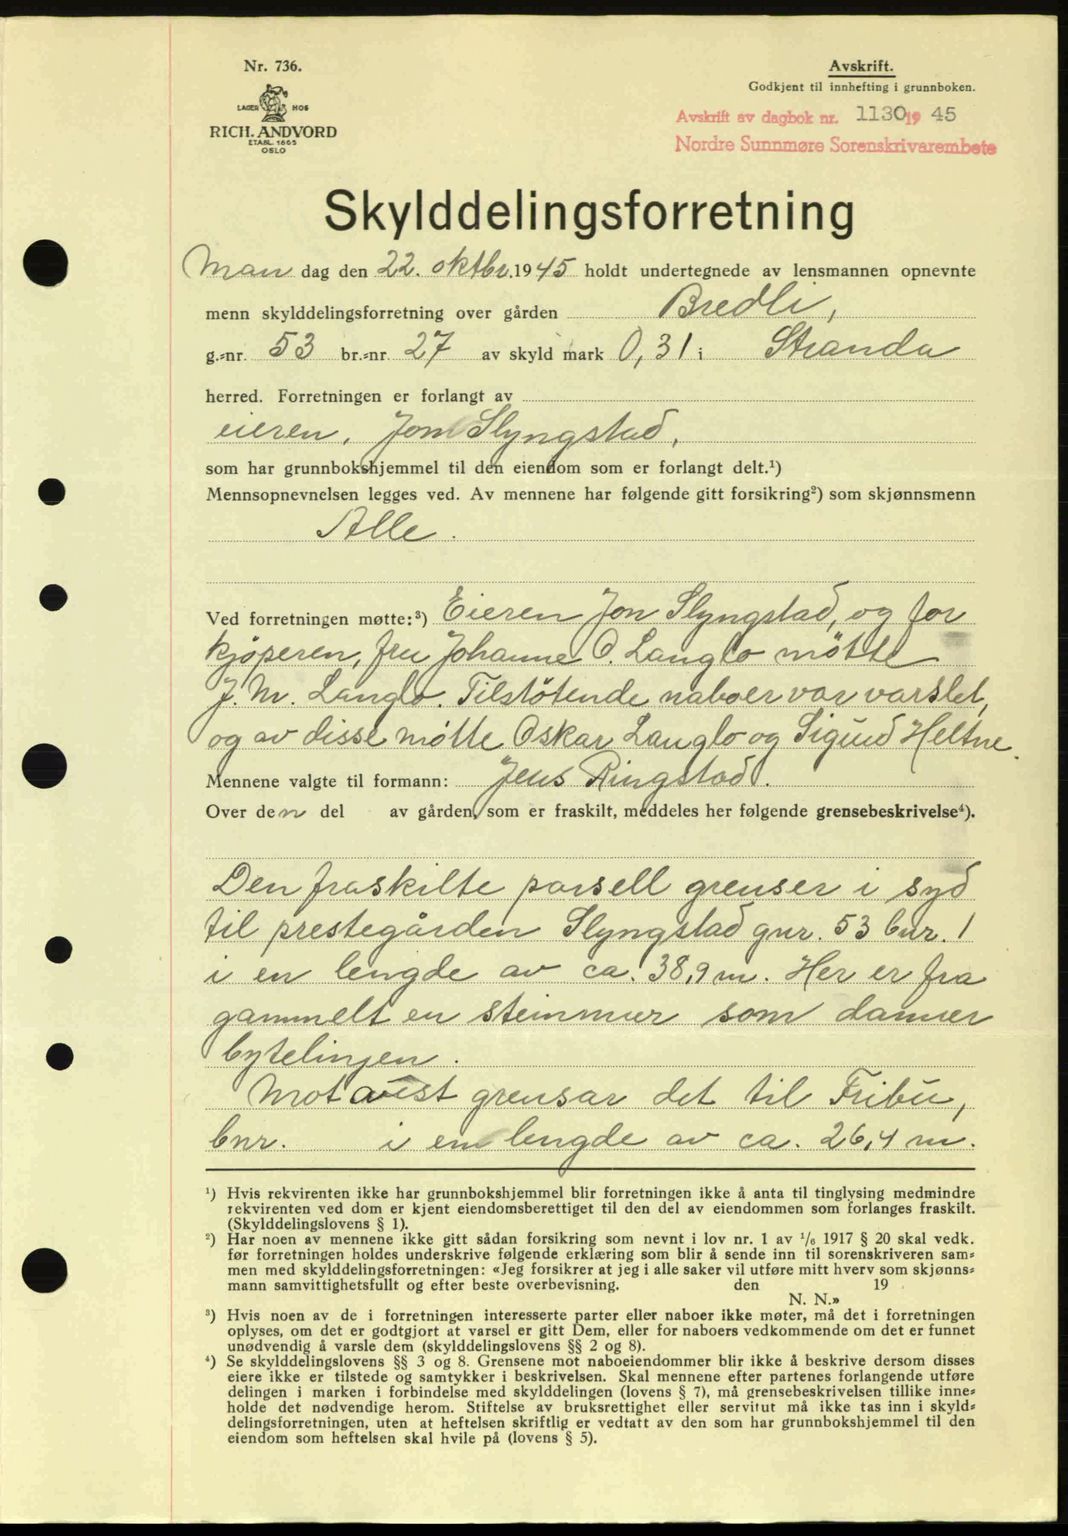 Nr. 736.
LAGER HOS
RICH. ANDVORD
ETABL. 1865
OSLO
Avskrift.
Godkjent til innhefting i grunnboken.
Avskrift av dagbok nr. 1130 19 45
Nordre Sunnmøre Sorenskrivarembete
Skylddelingsforretning
Man dag den 22. oktbr. 1945 holdt undertegnede av lensmannen opnevnte
menn skylddelingsforretning over gården Bredli,
g.=nr. 53 br.=nr. 27 av skyld mark 0,31 i Stranda
herred. Forretningen er forlangt av
eieren, Jon Slyngstad,
som har grunnbokshjemmel til den eiendom som er forlangt delt.¹)
Mennsopnevnelsen legges ved. Av mennene har følgende gitt forsikring²) som skjønnsmenn
Alle.
Ved forretningen møtte:³) Eieren Jon Slyngstad, og for
kjøperen, fru Johanne O. Langlo møtte
J. M. Langlo. Tilstøtende naboer var varslet,
og av disse møtte Oskar Langlo og Sigurd Heltne.
Mennene valgte til formann: Jens Ringstad.
Over den del av gården, som er fraskilt, meddeles her følgende grensebeskrivelse⁴).
Den fraskilte parsell grenser i syd
til prestegården Slyngstad gnr. 53 bnr. 1
i en lengde av ca. 38,9 m. Her er fra
gammelt en steinmur som danner
bytelinjen.
Mot aust grensar det til Fribu,
bnr. i en lengde av ca. 26,4 m.
¹) Hvis rekvirenten ikke har grunnbokshjemmel blir forretningen ikke å anta til tinglysing medmindre
rekvirenten ved dom er kjent eiendomsberettiget til den del av eiendommen som forlanges fraskilt.
(Skylddelingslovens § 1).
²) Har noen av mennene ikke gitt sådan forsikring som nevnt i lov nr. 1 av ¹/₆ 1917 § 20 skal vedk.
før forretningen holdes underskrive følgende erklæring som blir å sende inn til sorenskriveren sam=
men med skylddelingsforretningen: «Jeg forsikrer at jeg i alle saker vil utføre mitt hverv som skjønns=
mann samvittighetsfullt og efter beste overbevisning. den 19
N. N.»
³) Hvis noen av de i forretningen interesserte parter eller naboer ikke møter, må det i forretningen
oplyses, om det er godtgjort at varsel er gitt Dem, eller for naboers vedkommende om det er funnet
unødvendig å varsle dem (skylddelingslovens §§ 2 og 8).
⁴) Se skylddelingslovens §§ 3 og 8. Grensene mot naboeiendommer blir ikke å beskrive dersom disses
eiere ikke er tilstede og samtykker i beskrivelsen. Skal mennene efter partenes forlangende utføre
delingen i marken i forbindelse med skylddelingen (lovens § 7), må grensebeskrivelsen tillike inne=
holde det nødvendige herom. Stiftelse av bruksrettighet eller servitut må ikke tas inn i skyld=
delingsforretningen, uten at heftelsen skriftlig er vedtatt av den som har grunnbokshjemmel til den
eiendom som heftelsen skal hvile på (lovens § 5).